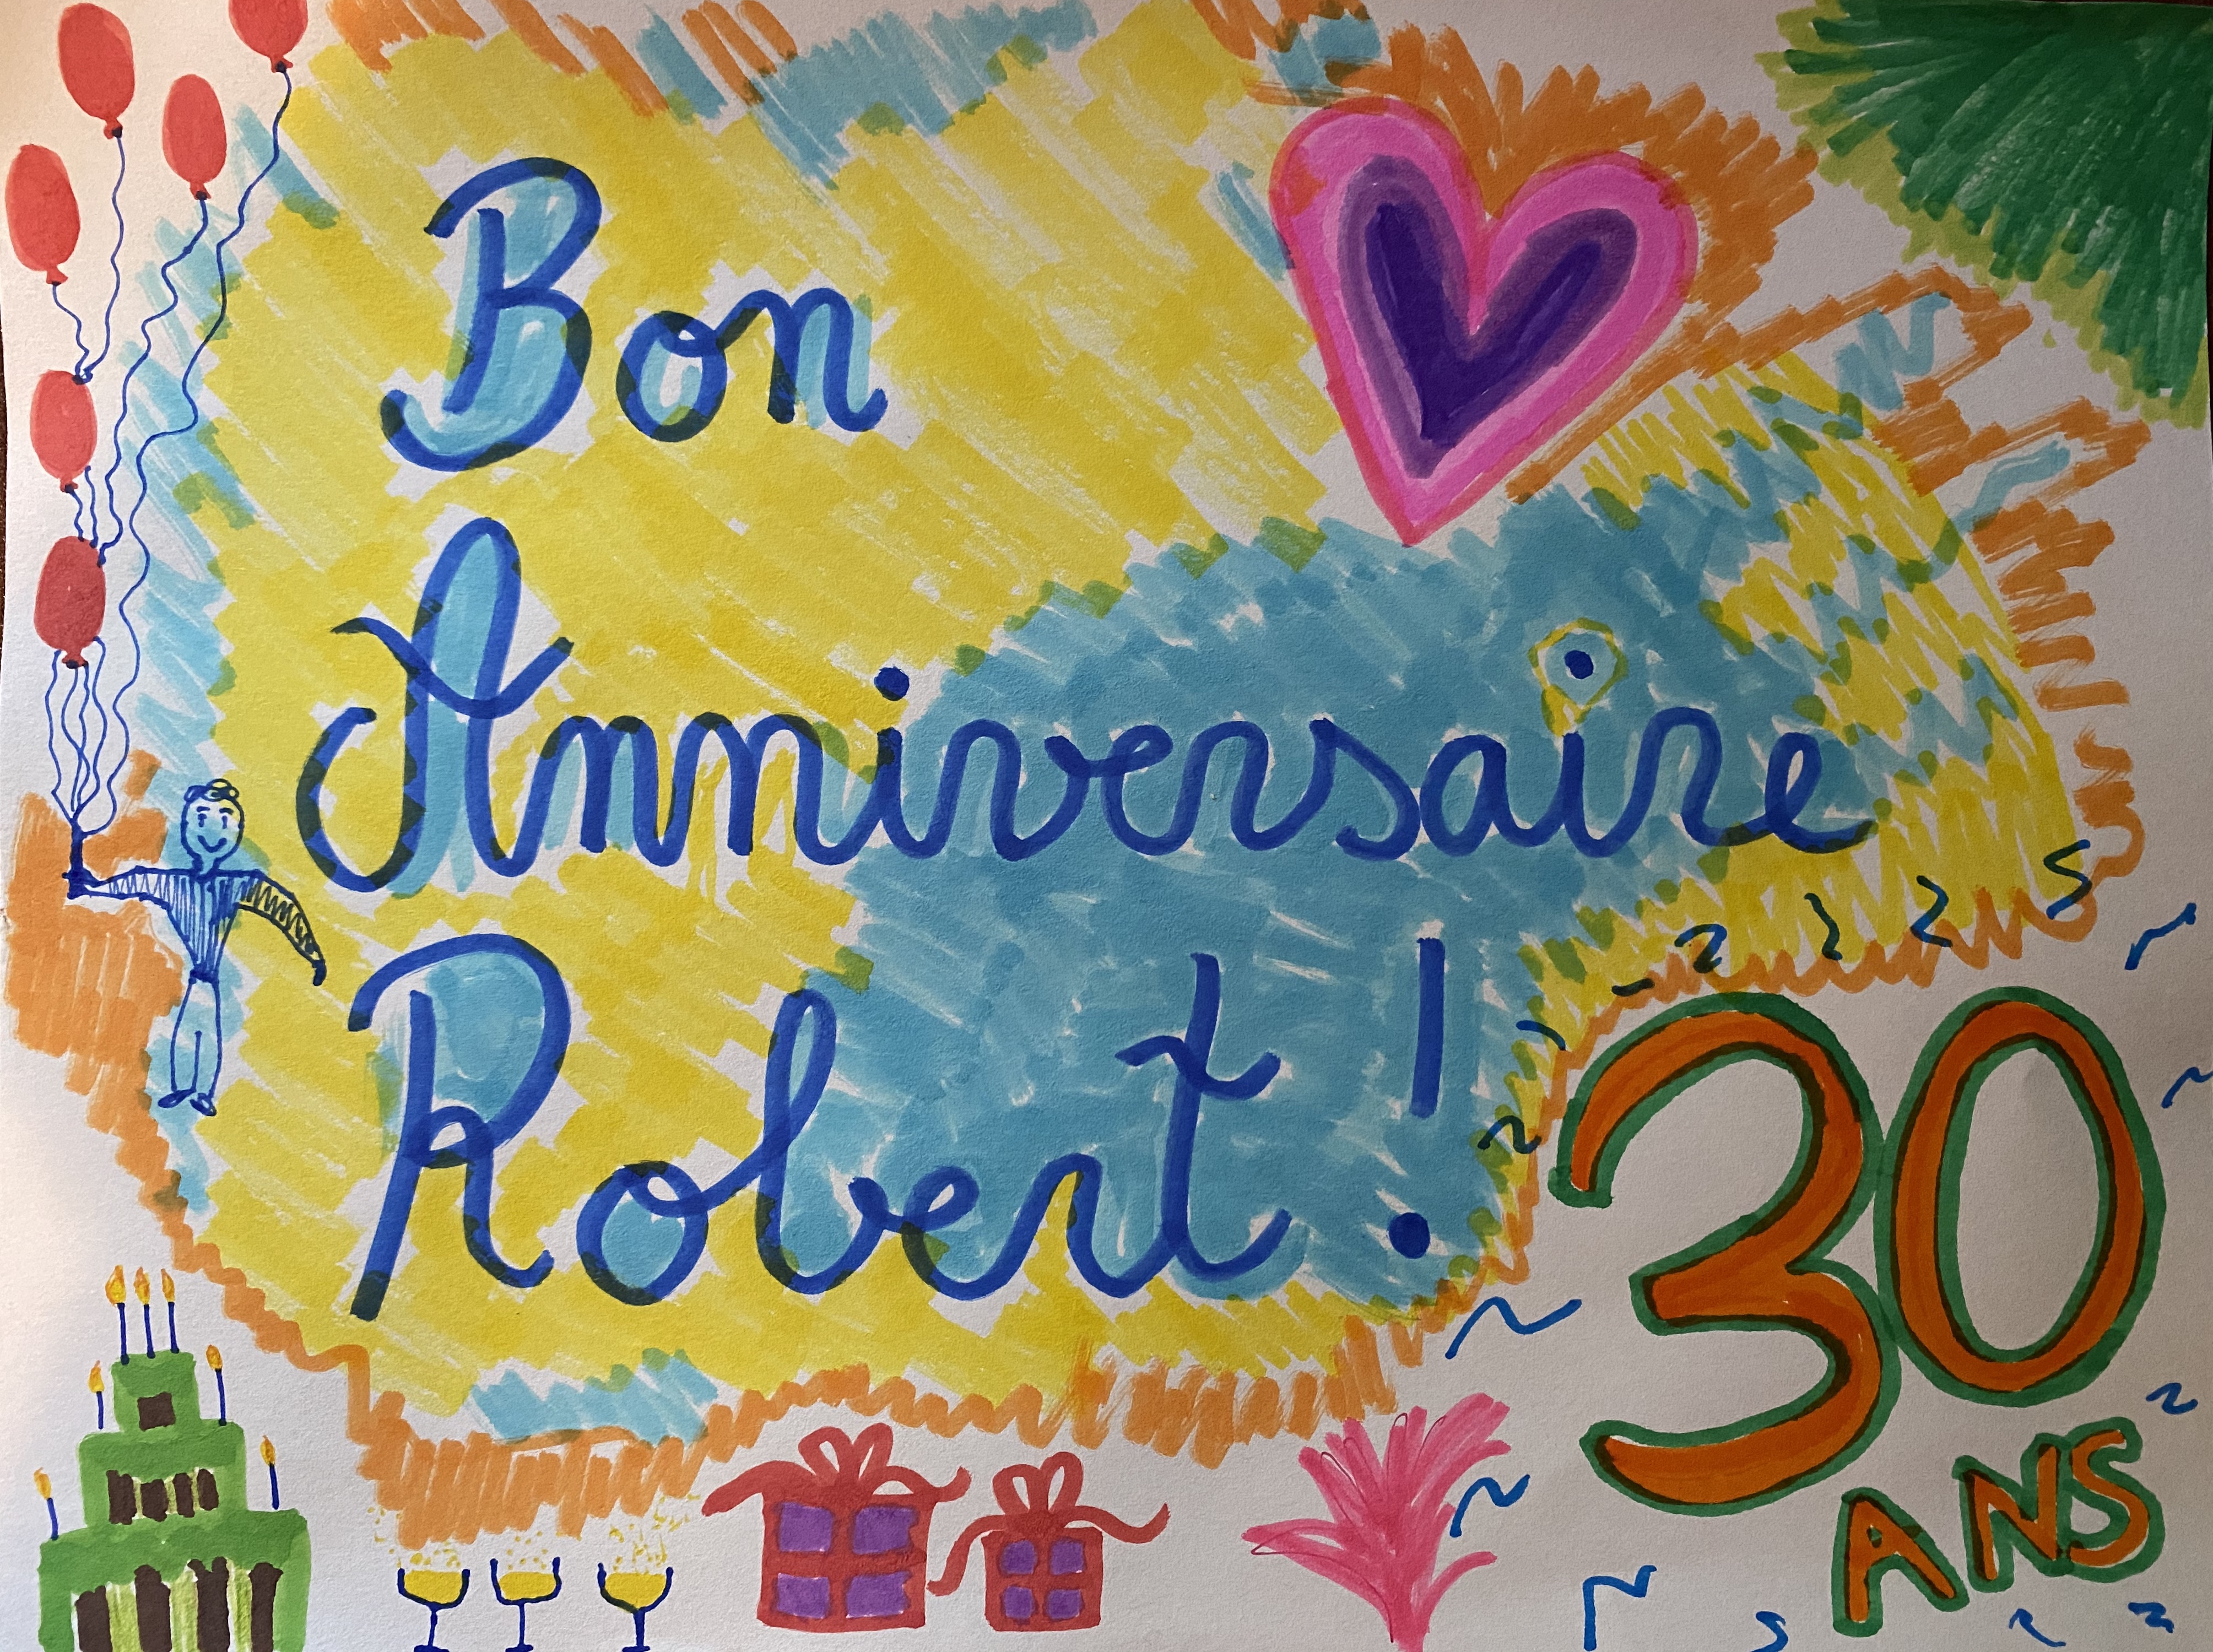 Bon
Anniversaire
Robert !
30
ANS